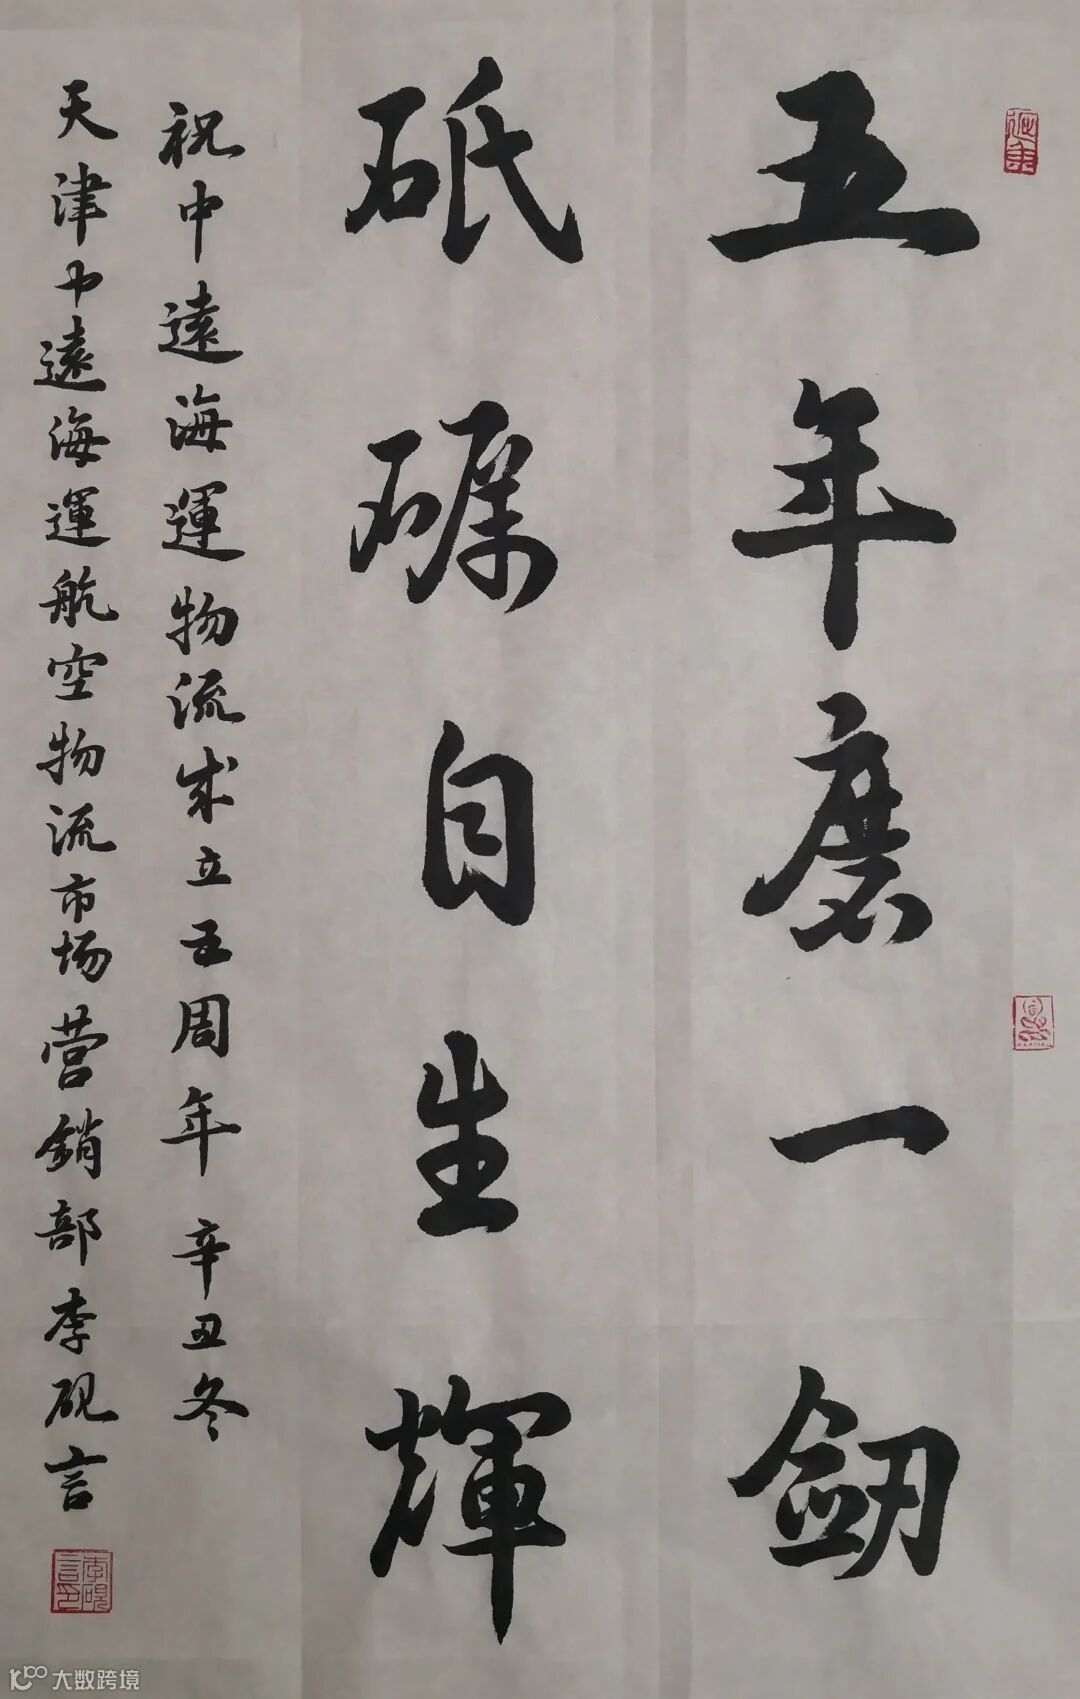 五年磨一劒
砥礪自生輝
祝中遠海運物流成立五周年 辛丑冬
天津中遠海運航空物流市场营銷部李砚言
李砚言印
大数跨境